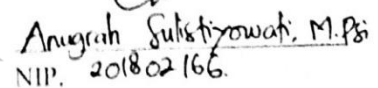 Anugrah Sulistiyowati, M.Psi
NIP. 201802166.